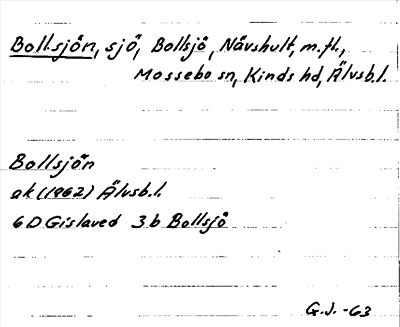 Bollsjön, sjö, Bollsjö, Nävshult, m.fl.,
Mossebo sn, Kinds hd, Älvsb.l.
Bollsjön
ak (1962) Älvsb.l.
6D Gislaved 3b Bollsjö
G.J. -63